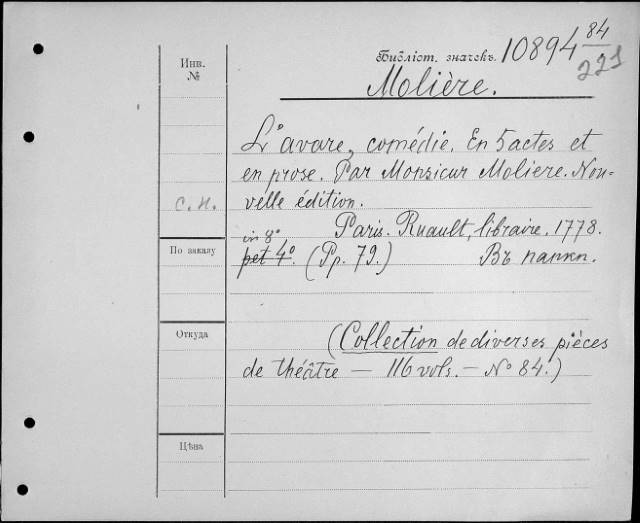 Инв.
№
Библіот. значекъ. 10894 84/221
Molière.
L'avare, comédie. En 5 actes et
en prose. Par Monsieur Moliere. Nou-
velle édition.
с. н.
Paris. Ruault, libraire. 1778.
in 8°
pet 4°. (Pp. 79.) Въ папкѣ.
По заказу
Откуда
(Collection de diverses pièces
de théâtre — 116 vols. — № 84.)
Цѣна